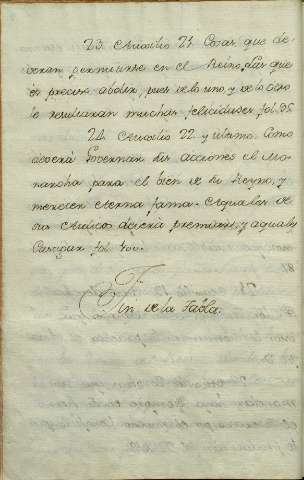 23 Auxilio 21 Cosas que de
veran permitirse en el Reino, Las que
es preciso abolir, pues de lo uno y de lo otro
le resultaran muchas felicidades fol. 95
24 Auxilio 22 y ultimo. Como
devera Governar sus acciones el Mo-
narcha para el bien de su Reyno, y
merecer eterna fama. Aquales de
sus devera premiar, y aquales
Castigar fol. 100.
Fin de la Tabla.